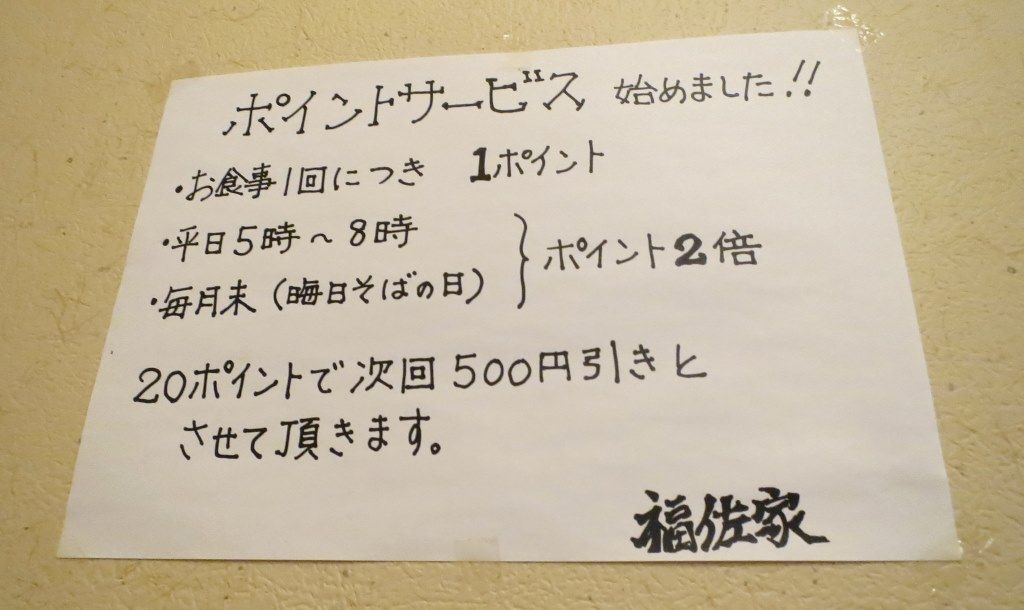 ポイントサービス 始めました!!
・お食事1回につき 1ポイント
・平日5時～8時
・毎月末(晦日そばの日)
ポイント2倍
20ポイントで次回500円引きと
させて頂きます。
福佐家